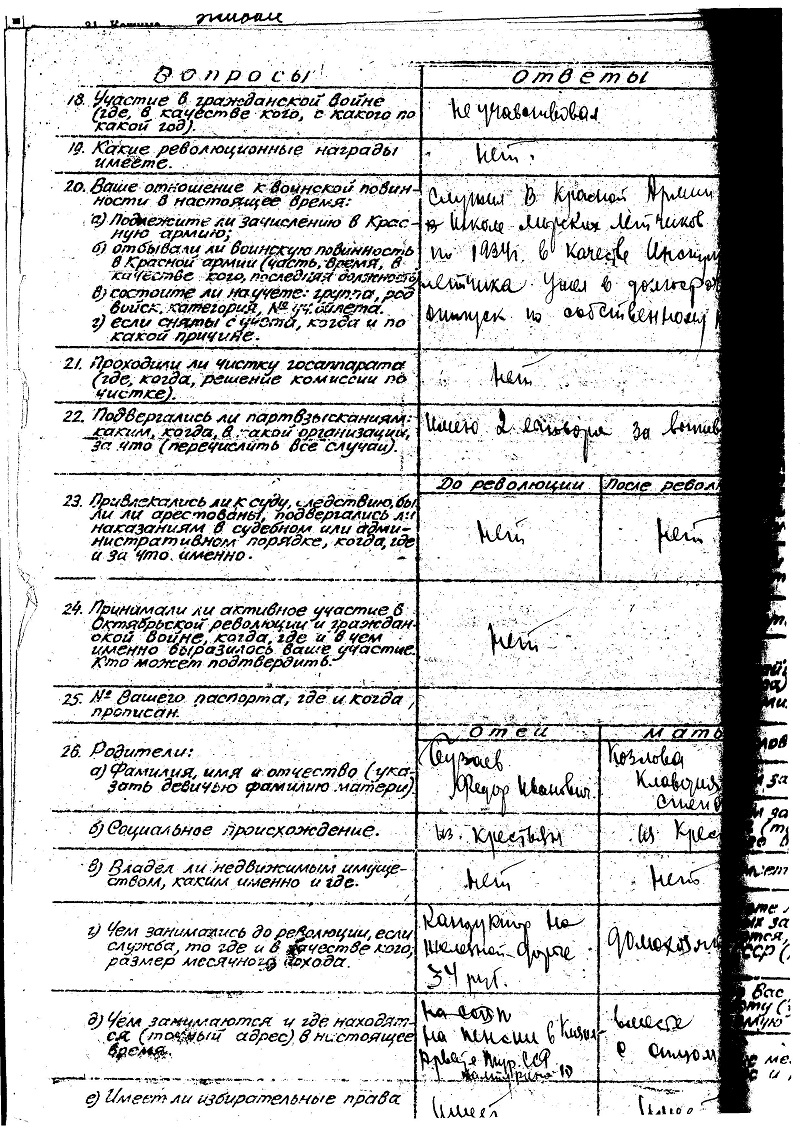 Вопросы
Ответы
18. Участие в гражданской войне
(где, в качестве кого, с какого по
какой год).
не учавствовал
19. Какие революционные награды
имеете.
нет.
20. Ваше отношение к воинской повин-
ности в настоящее время:
а) Подлежите ли зачислению в Крас-
ную армию;
б) отбывали ли воинскую повинность
в Красной армии (часть, время, в
качестве кого, последняя должность)
в) состоите ли на учете: группа, род
войск, категория, № уч. билета.
г) если сняты с учета, когда и по
какой причине.
Служил в Красной Армии
в Школе морских летчиков
по 1934г. в качестве
летчика Ушел в
отпуск по собственному
21. Проходили ли чистку госаппарата
(где, когда, решение комиссии по
чистке).
нет
22. Подвергались ли партвзысканиям:
каким, когда, в какой организации,
за что (перечислить все случаи).
Имею 2 за
До революции
После револ
23. Привлекались ли к суду, следствию, бы
ли ли арестованы, подвергались ли
наказаниям в судебном или адми-
нистративном порядке, когда, где
и за что именно.
нет
нет
24. Принимали ли активное участие в
Октябрьской революции и граждан-
ской войне, когда, где и в чем
именно выразилось ваше участие.
Кто может подтвердить.
нет
25. № Вашего паспорта, где и когда
прописан.
Отец
Мать
26. Родители:
а) Фамилия, имя и отчество (ука-
зать девичью фамилию матери)
Федор Иванович.
Козлова
Клавдия
б) Социальное происхождение.
из крестьян
из крес
в) Владел ли недвижимым имуще-
ством, каким именно и где.
нет
нет
г) Чем занимались до революции, если
служба, то где и в качестве кого,
размер месячного дохода.
Кандуктор на
железной-дороге
34 руб.
домохозяй
д) Чем занимаются и где находят-
ся (точный адрес) в настоящее
время.
на пенсии в Кизил-
Арвате Тур. ССР
вместе
с отцом
е) Имеет ли избирательные права
имеет
имеет